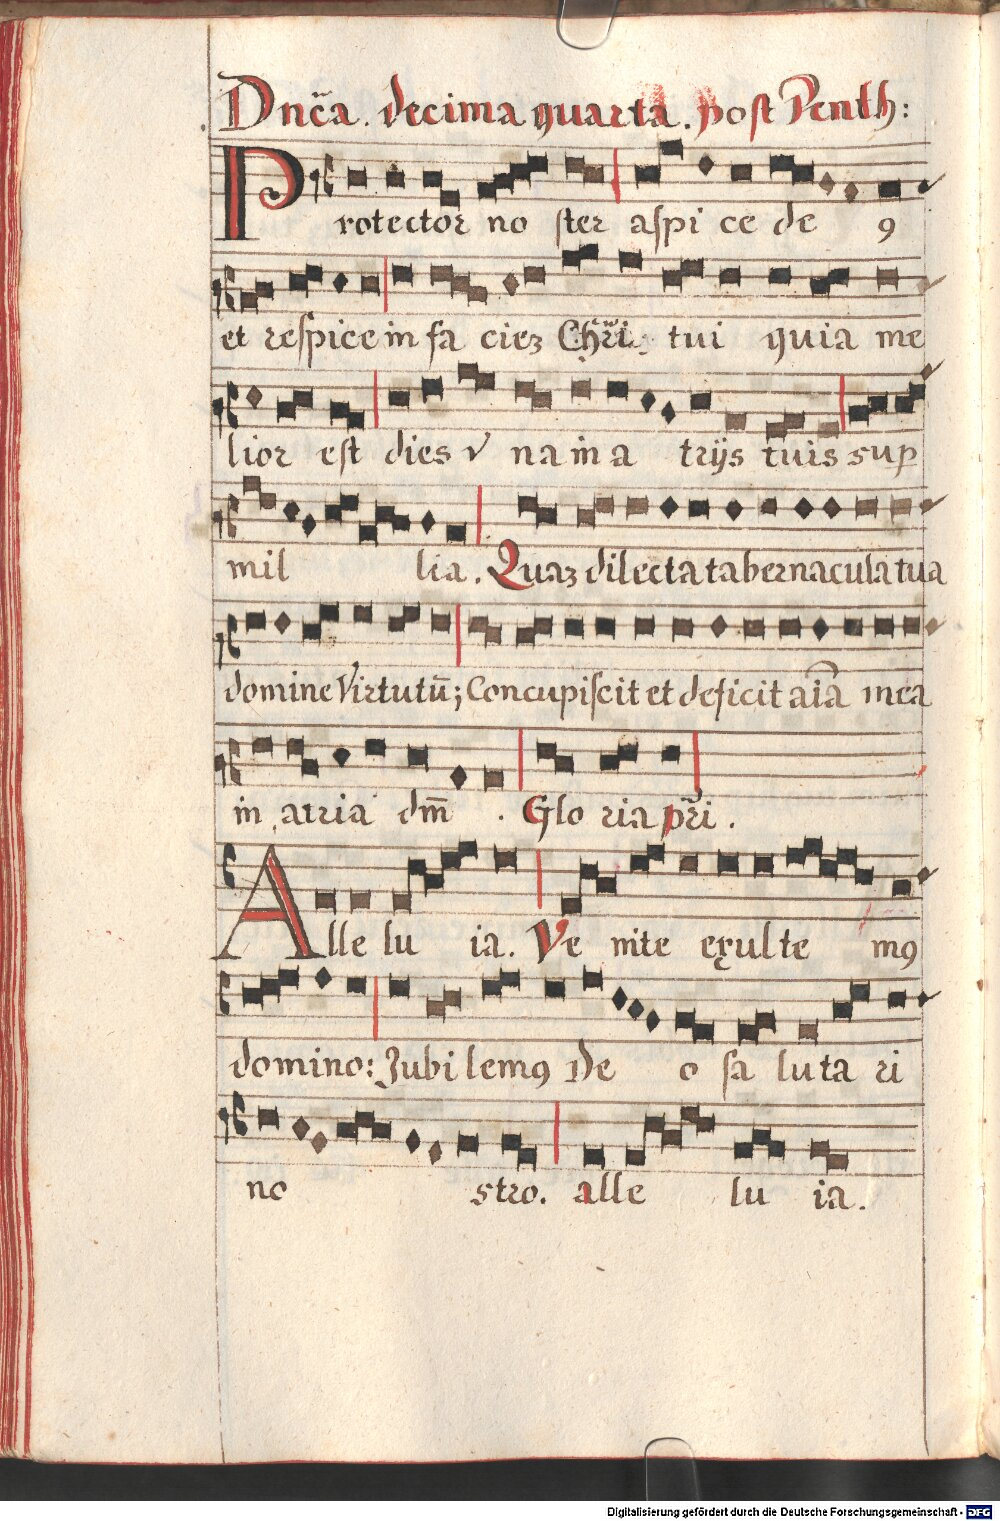 Dnĉa. decima quarta. post Penth:
Protector noster aspice de9
et respice in faciez Chr̃i. tui quia me
lior est dies vna in atrijs tuis sup
millia. Quaz dilecta tabernacula tua
domine Virtutū; Concupiscit et deficit aīa mea
in atria dm̄. Gloria pr̃i.
Allelu ia. Venite exultem9
domino: Jubilem9 Deo salutari
nostro. alleluia.
Digitalisierung gefördert durch die Deutsche Forschungsgemeinschaft - DFG